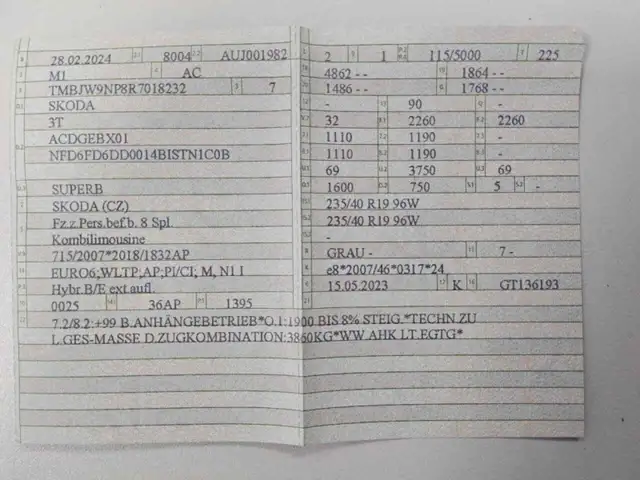 28.02.2024 8004 AUJ001982
M1 AC
TMBJW9NP8R7018232 7
SKODA
3T
ACDGEBX01
NFD6FD6DD0014BISTN1C0B
SUPERB
SKODA (CZ)
Fz.z.Pers.bef.b. 8 Spl.
Kombilimousine
715/2007*2018/1832AP
EURO6;WLTP;AP;PI/CI; M, N1 I
Hybr.B/E ext.aufl.
0025 36AP 1395
2 1 115/5000 225
4862 - - 1864 - -
1486 - - 1768 - -
- 90 -
32 2260 2260
1110 1190 -
1110 1190 -
69 3750 69
1600 750 5 -
235/40 R19 96W
235/40 R19 96W
-
GRAU - 7 -
e8*2007/46*0317*24
15.05.2023 K GT136193
7.2/8.2:+99 B.ANHÄNGEBETRIEB*O.1:1900 BIS 8% STEIG.*TECHN.ZU
L.GES-MASSE D.ZUGKOMBINATION:3860KG*WW.AHK LT.EGTG*